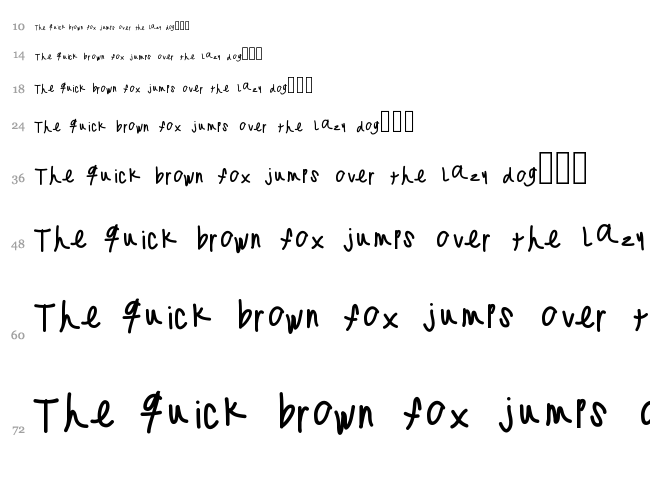 10 The quick brown fox jumps over the lazy dog▯▯▯
14 The quick brown fox jumps over the lazy dog▯▯▯
18 The quick brown fox jumps over the lazy dog▯▯▯
24 The quick brown fox jumps over the lazy dog▯▯▯
36 The quick brown fox jumps over the lazy dog▯▯▯
48 The quick brown fox jumps over the lazy
60 The quick brown fox jumps over t
72 The quick brown fox jumps o